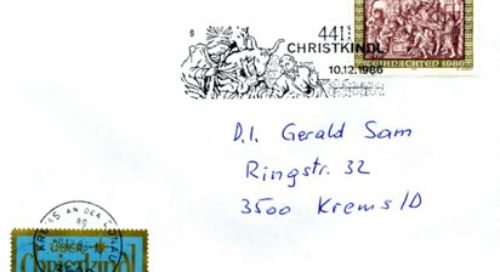 9
4411
CHRISTKINDL
10.12.1986
WEIHNACHTEN 1986
D.I. Gerald Sam
Ringstr. 32
3500 Krems/D
KREMS AN DER DONAU
über
Christkindl